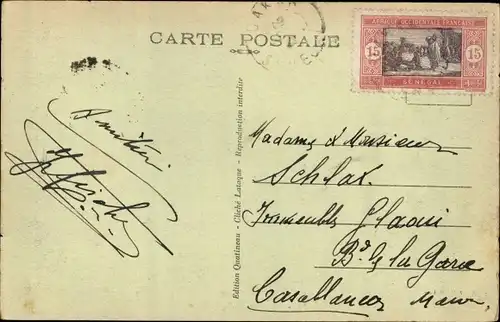 DAKAR
CARTE POSTALE
AFRIQUE OCCIDENTALE FRANÇAISE
15
15
SÉNÉGAL
Amitiés
Edition Quatineau - Cliché Lataque - Reproduction interdite
Madame & Monsieur
Schlax
Immeubles Glaoui
Bd de la Gare
Casablanca Maroc